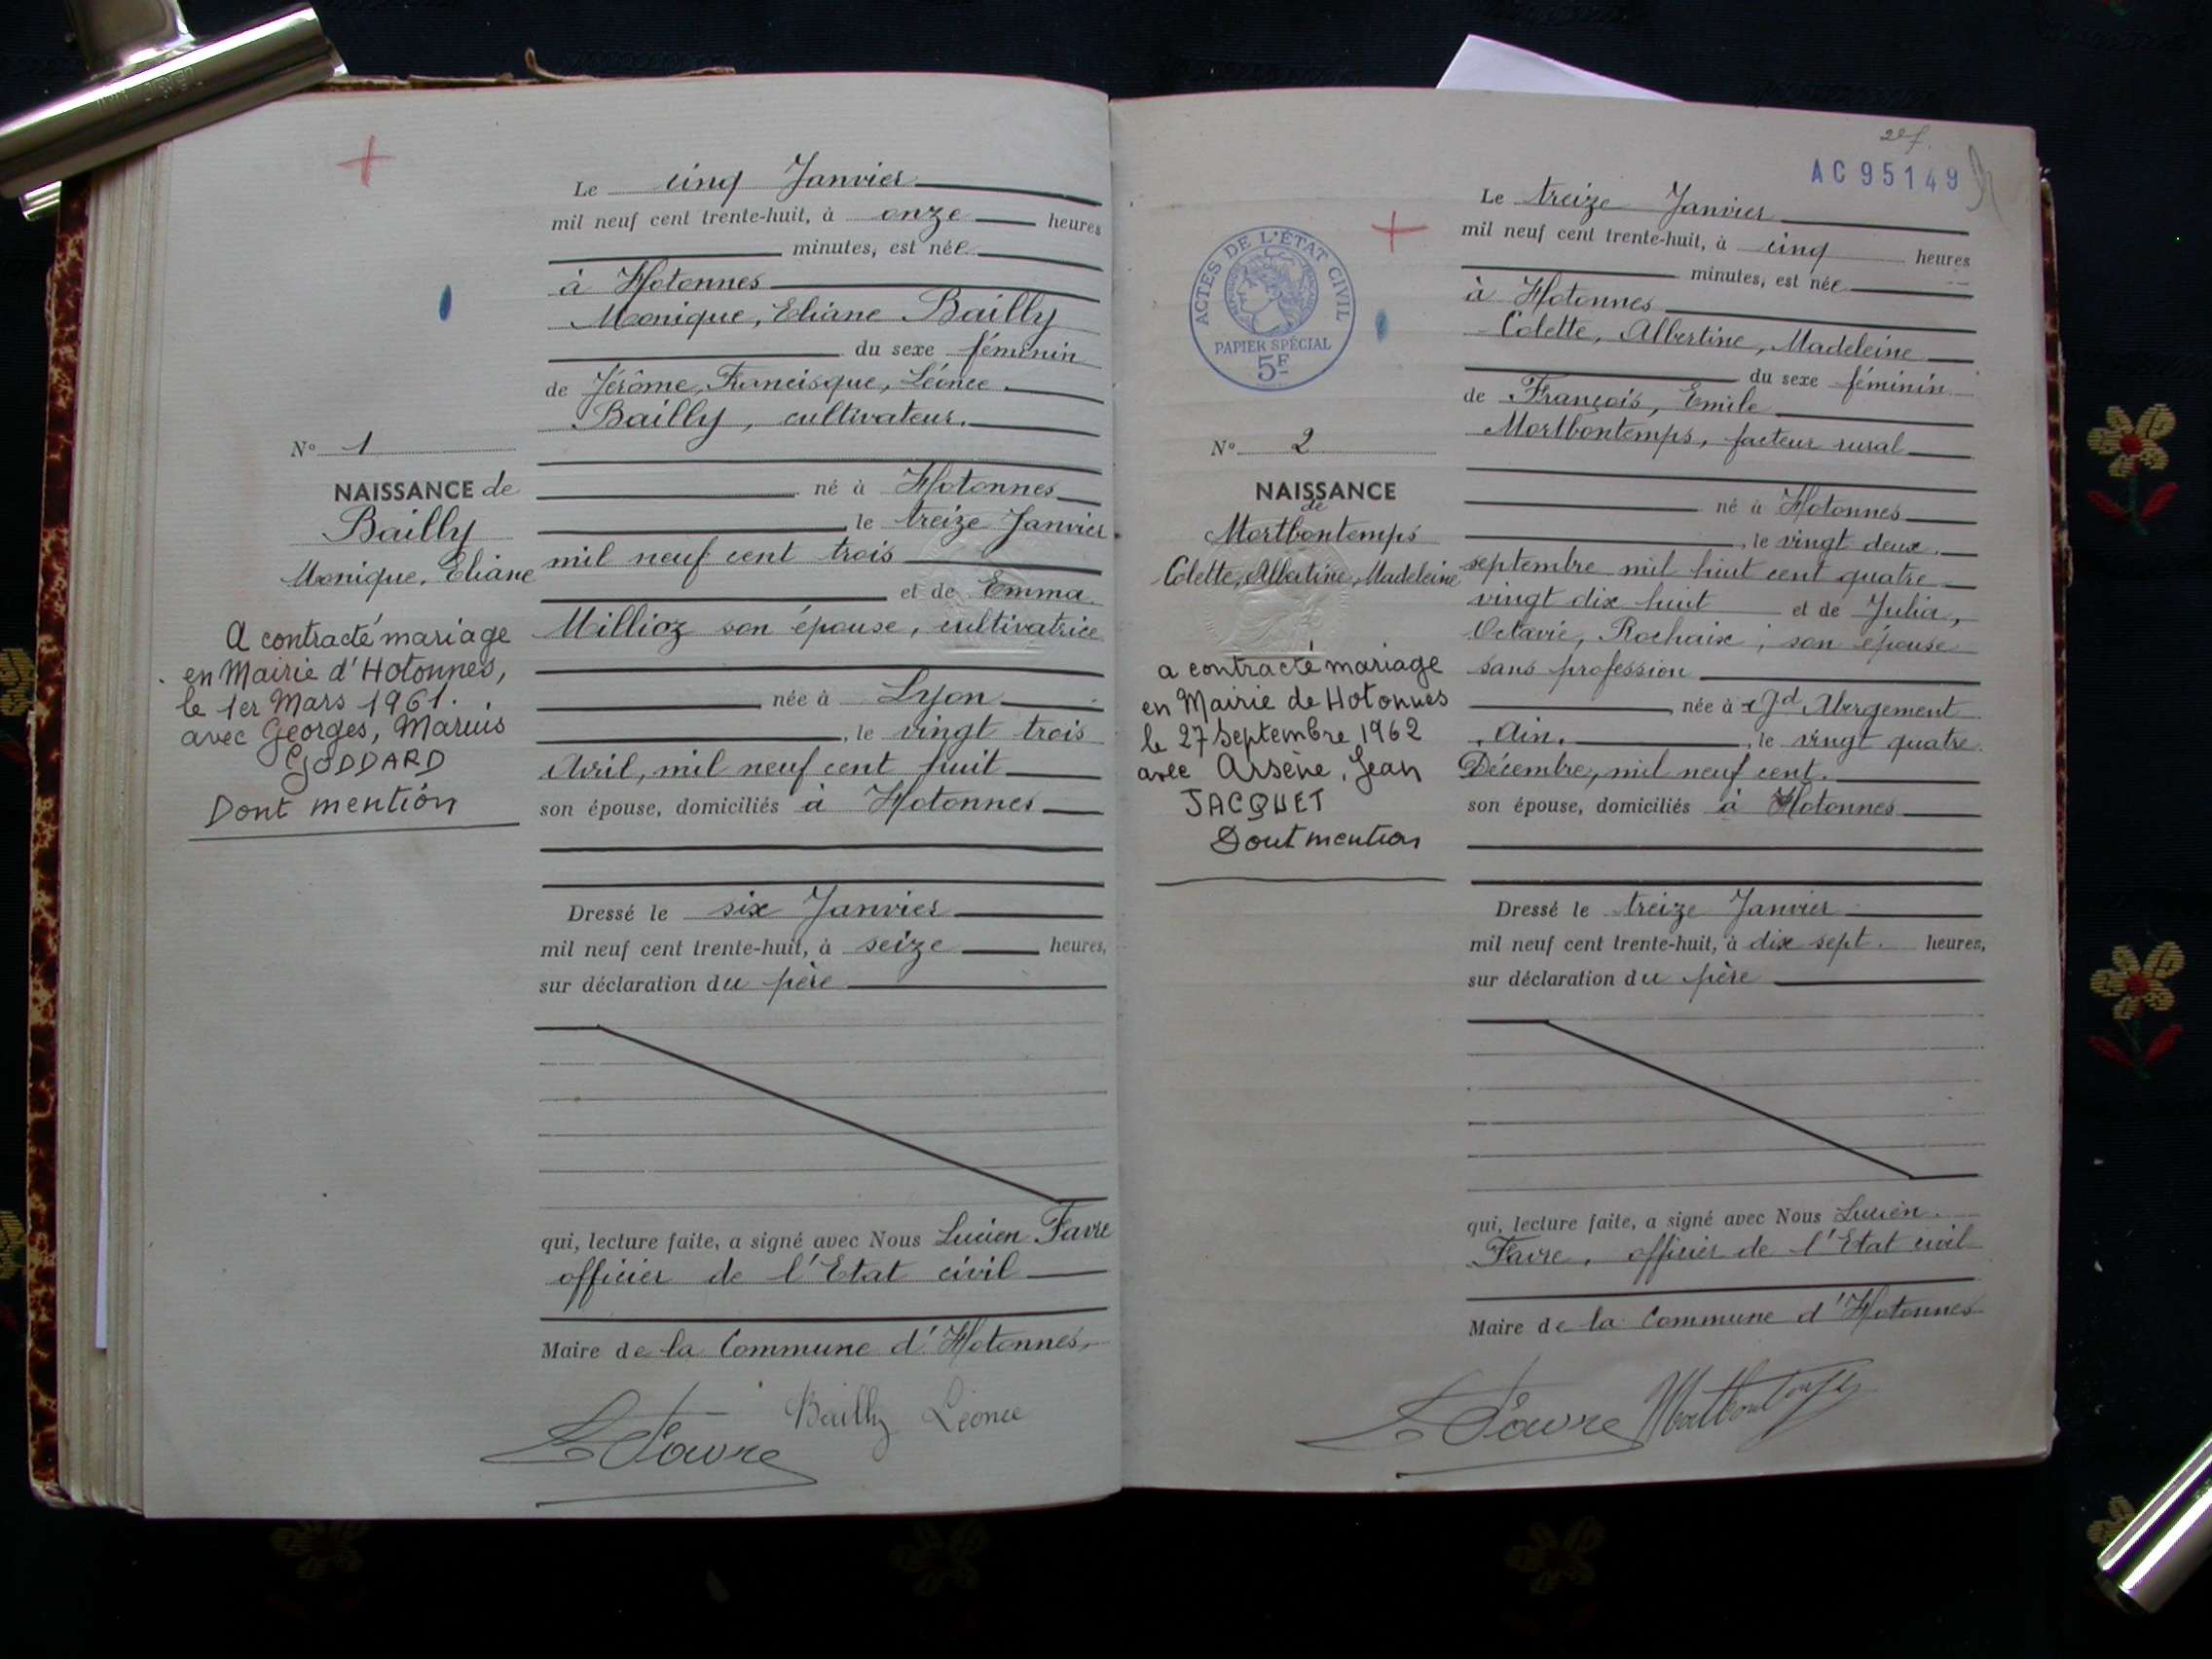 Le cinq Janvier
mil neuf cent trente-huit, à onze heures
minutes, est née
à Hotonnes
Monique, Eliane Bailly
du sexe féminin
de Jérôme, Francisque, Léonce
Bailly, cultivateur.
né à Hotonnes
le treize Janvier
mil neuf cent trois
et de Emma
Millioz son épouse, cultivatrice
née à Lyon
, le vingt trois
Avril, mil neuf cent huit
son épouse, domiciliés à Hotonnes
Dressé le six Janvier
mil neuf cent trente-huit, à seize heures,
sur déclaration du père
qui, lecture faite, a signé avec Nous Lucien Favre
officier de l'Etat civil
Maire de la Commune d'Hotonnes,
Bailly Léonce
L Favre
N° 1
NAISSANCE de
Bailly
Monique, Eliane
A contracté mariage
en Mairie d'Hotonnes,
le 1er Mars 1961.
avec Georges, Marius
GODDARD
Dont mention
2e f.
AC95149
Le treize Janvier
mil neuf cent trente-huit, à cinq heures
minutes, est née
à Hotonnes
Colette, Albertine, Madeleine
du sexe féminin
de François, Emile
Mortbontemps, facteur rural
né à Hotonnes
, le vingt deux
septembre mil huit cent quatre
vingt dix huit et de Julia,
Octavie, Rochaix, son épouse
sans profession
née à Gd Abergement
Ain. , le vingt quatre
Décembre, mil neuf cent.
son épouse, domiciliés à Hotonnes
Dressé le treize Janvier
mil neuf cent trente-huit, à dix sept. heures,
sur déclaration du père
qui, lecture faite, a signé avec Nous Lucien
Favre, officier de l'Etat civil
Maire de la Commune d'Hotonnes
L Favre Mortbontemps
ACTES DE L'ÉTAT CIVIL
PAPIER SPÉCIAL
5F
N° 2
NAISSANCE
de
Mortbontemps
Colette, Albertine, Madeleine
a contracté mariage
en Mairie de Hotonnes
le 27 Septembre 1962
avec Arsène, Jean
JACQUET
Dont mention